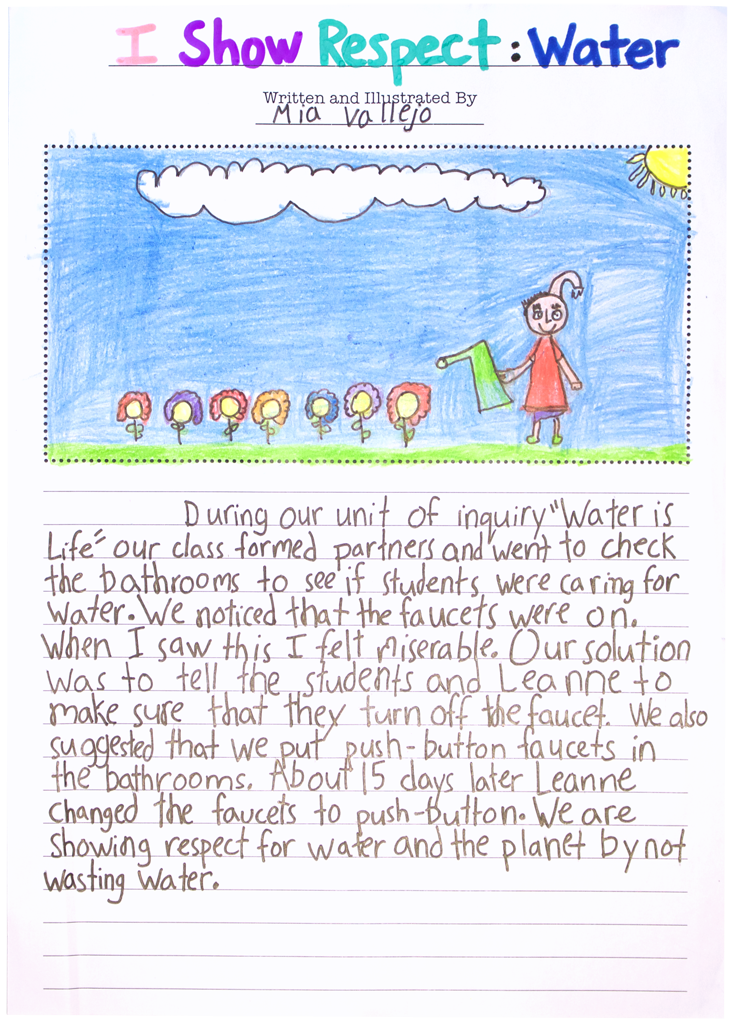 I Show Respect: Water
Written and Illustrated By
Mia Vallejo
During our unit of inquiry "Water is
Life" our class formed partners and went to check
the bathrooms to see if students were caring for
water. We noticed that the faucets were on.
When I saw this I felt miserable. Our solution
was to tell the students and Leanne to
make sure that they turn off the faucet. We also
suggested that we put push-button faucets in
the bathrooms. About 15 days later Leanne
changed the faucets to push-button. We are
showing respect for water and the planet by not
wasting water.